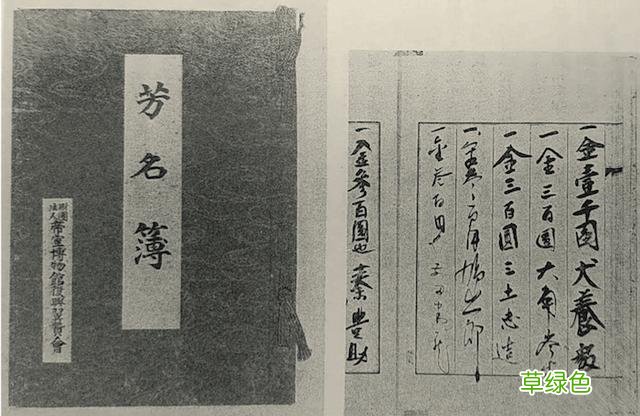 芳名簿
財團法人
帝室博物館復興翼賛會
一金壹千圓 犬養毅
一金三百圓 大角岑
一金三百圓 三土忠造
一金 鳩山一郎
一金
一金参百圓也 秦豊助
草绿色